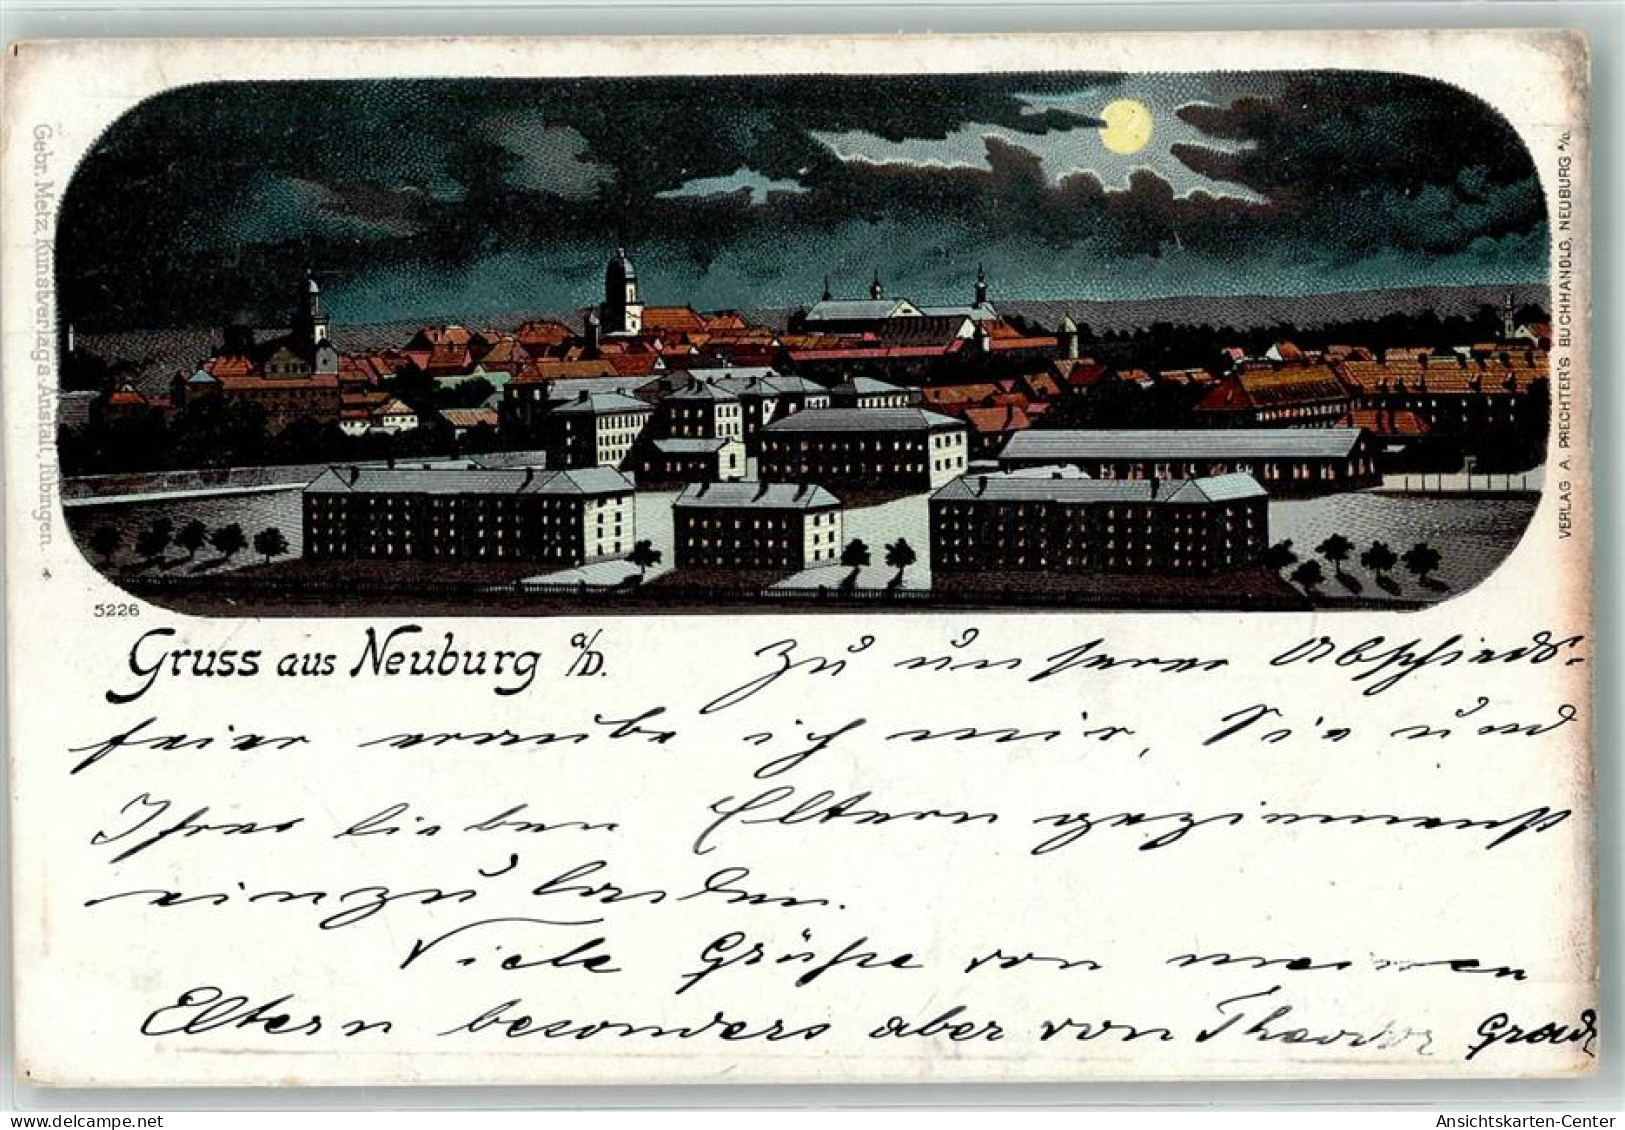 Gebr. Metz, Kunstverlags-Anstalt, Tübingen.
VERLAG A. PRECHTER'S BUCHHANDLG, NEUBURG a/D.
5226
Gruss aus Neuburg a/D.
Zu unserer Abschieds-
feier erlaube ich mir, Sie und
Ihre lieben Eltern geziemenst
einzuladen.
Viele Grüße von meinen
Eltern besonders aber von Theodor
delcampe.net
Ansichtskarten-Center